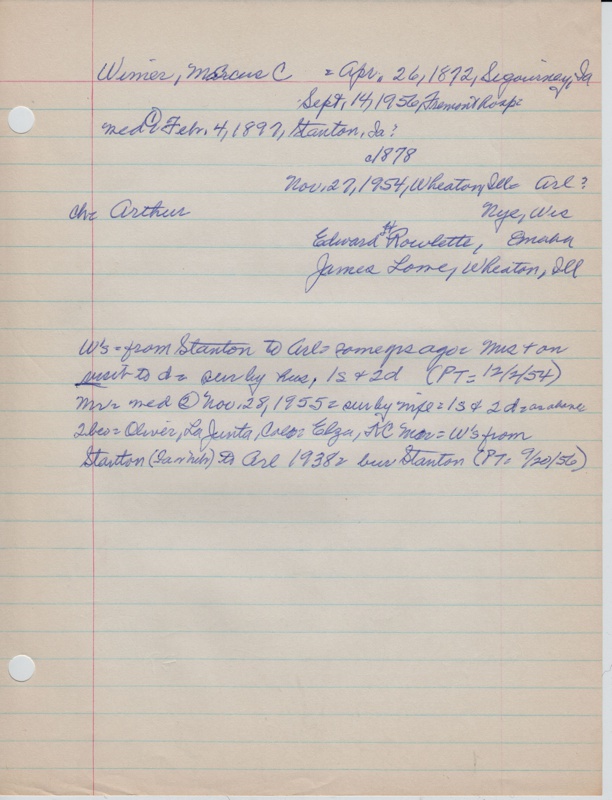 Wimer, Marcus C = Apr. 26, 1872, Sigourney, Ia
Sept. 14, 1956, Fremont Hosp=
med ① Feb. 4, 1897, Stanton, Ia?
c1878
Nov. 27, 1954, Wheaton, Ill= Arl?
ch= Arthur Nye, Wis
Edward H Rowlette, Omaha
James Lowe, Wheaton, Ill
W's = from Stanton to Arl = some yrs ago = Mrs + on
visit to d = sur by hus, 1s + 2d (PT = 12/2/54)
Mr = med ② Nov. 28, 1955 = sur by wife = 1s + 2d = as above
2bro = Oliver, La Junta, Colo = Elza, KC Mo = = W's from
Stanton to Arl 1938 = bur Stanton (PT = 9/20/56)